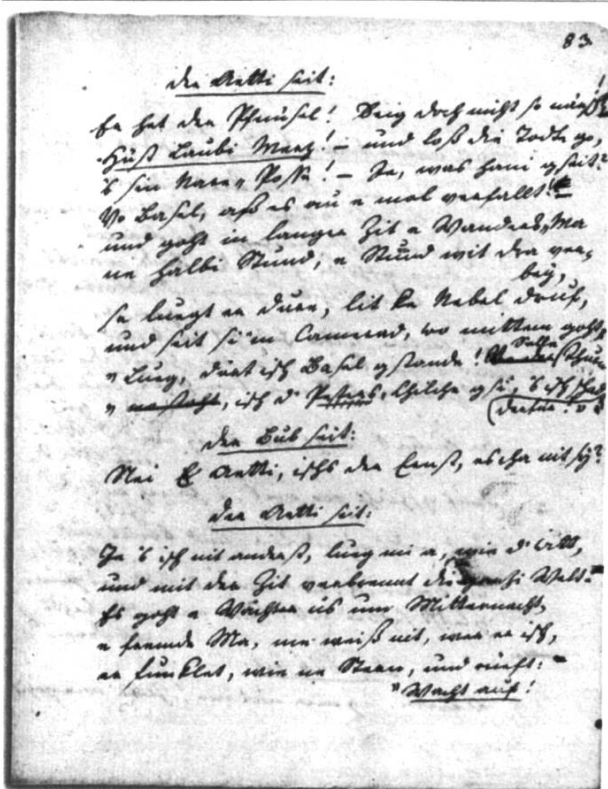 83
Der Aetti seit:
Er het der Pfnüsel! doch nicht so närsch!
Hüst Laubi Merz! – und loß die Todte go,
's sin Nare-Posse! – Je, was hani gseit?
Vo Basel, aß es au e mol verfallt! –
und goht in langer Zit e Wanders-Ma
ne halbi Stund, e Stund wit dra ver-
bey,
se luegt er dure, lit ke Nebel druf,
und seit sim Camerad, wo mittem goht,
„Lueg, dört isch Basel gstande! Selle Thurn
„ isch d' Peters-Chilche gsi, 's isch schad
derfür!"
Der Bub seit:
Nei Aetti, ischs der Ernst, es cha nit sy?
Der Aetti seit:
Je 's isch nit anderst, lueg mi a, wie d' witt,
und mit der Zit verbrennt die ganzi Welt.
Es goht e Wächter us um Mitternacht,
e fremde Ma, me weiß nit, wer er isch,
er funklet, wie ne Stern, und rüeft:
"Wacht auf!